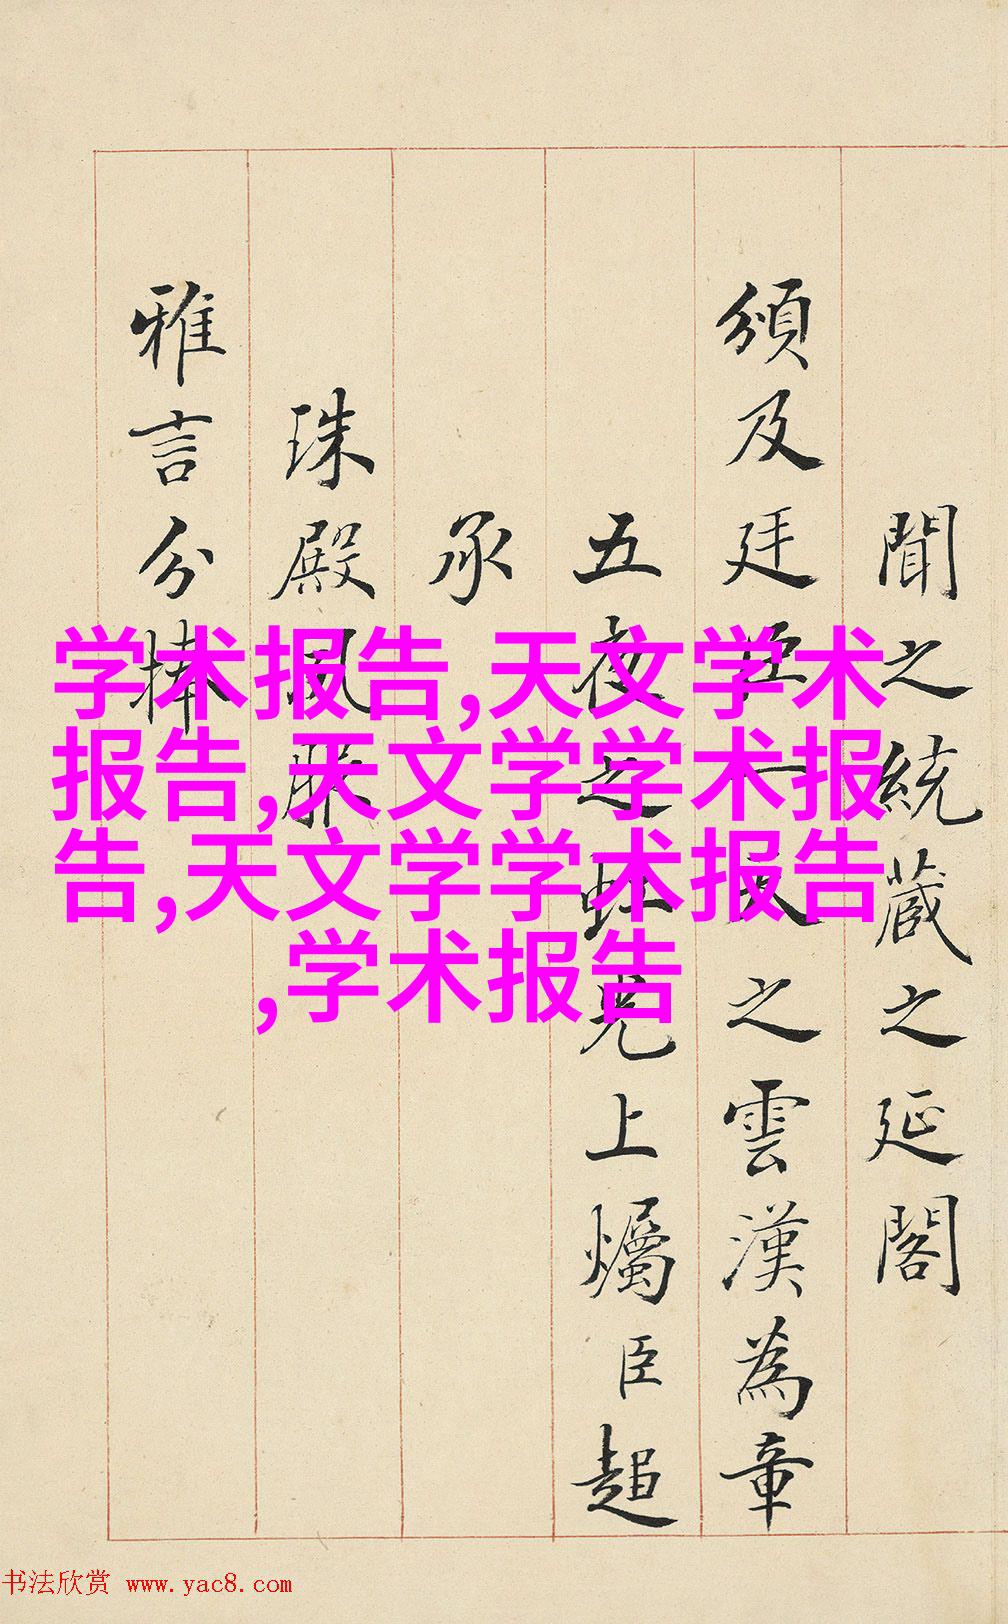 聞之統蔵之延閣
頒及廷臣一天之雲漢為章
五夜之虹光上爥臣超
承
珠殿風脈
雅言分捧
学术报告,天文学术
报告,天文学学术报
告,天文学学术报告
,学术报告
书法欣赏 www.yac8.com